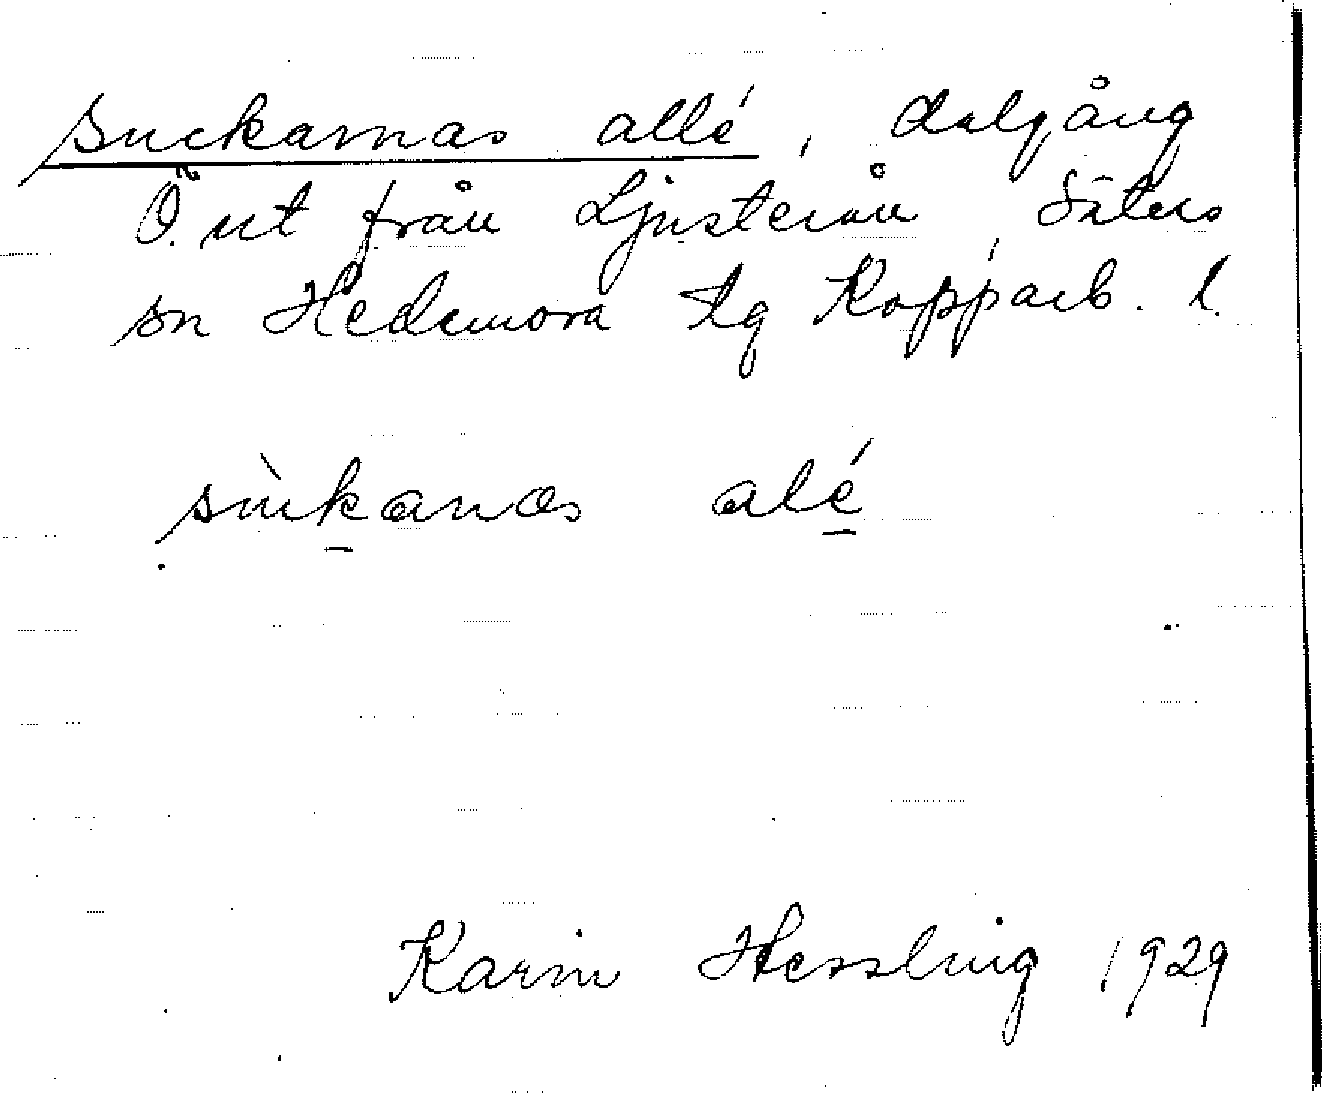 suckarnas allé, dalgång
Ö. ut från Ljusterån, Säters
sn Hedemora tg Kopparb. l.
sùkanas alé
Karin Hessling 1929